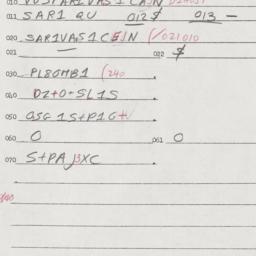 011 SAR1 QU 012 $ 013 —
020 SAR1VAS1CEJN (/021010
021 — 022 $
030 PL8OMB1 (240
040 DZ+O-SL1S
050 OSG 1S+P1G+/
060 O 061 O
070 S+PAJ3XC